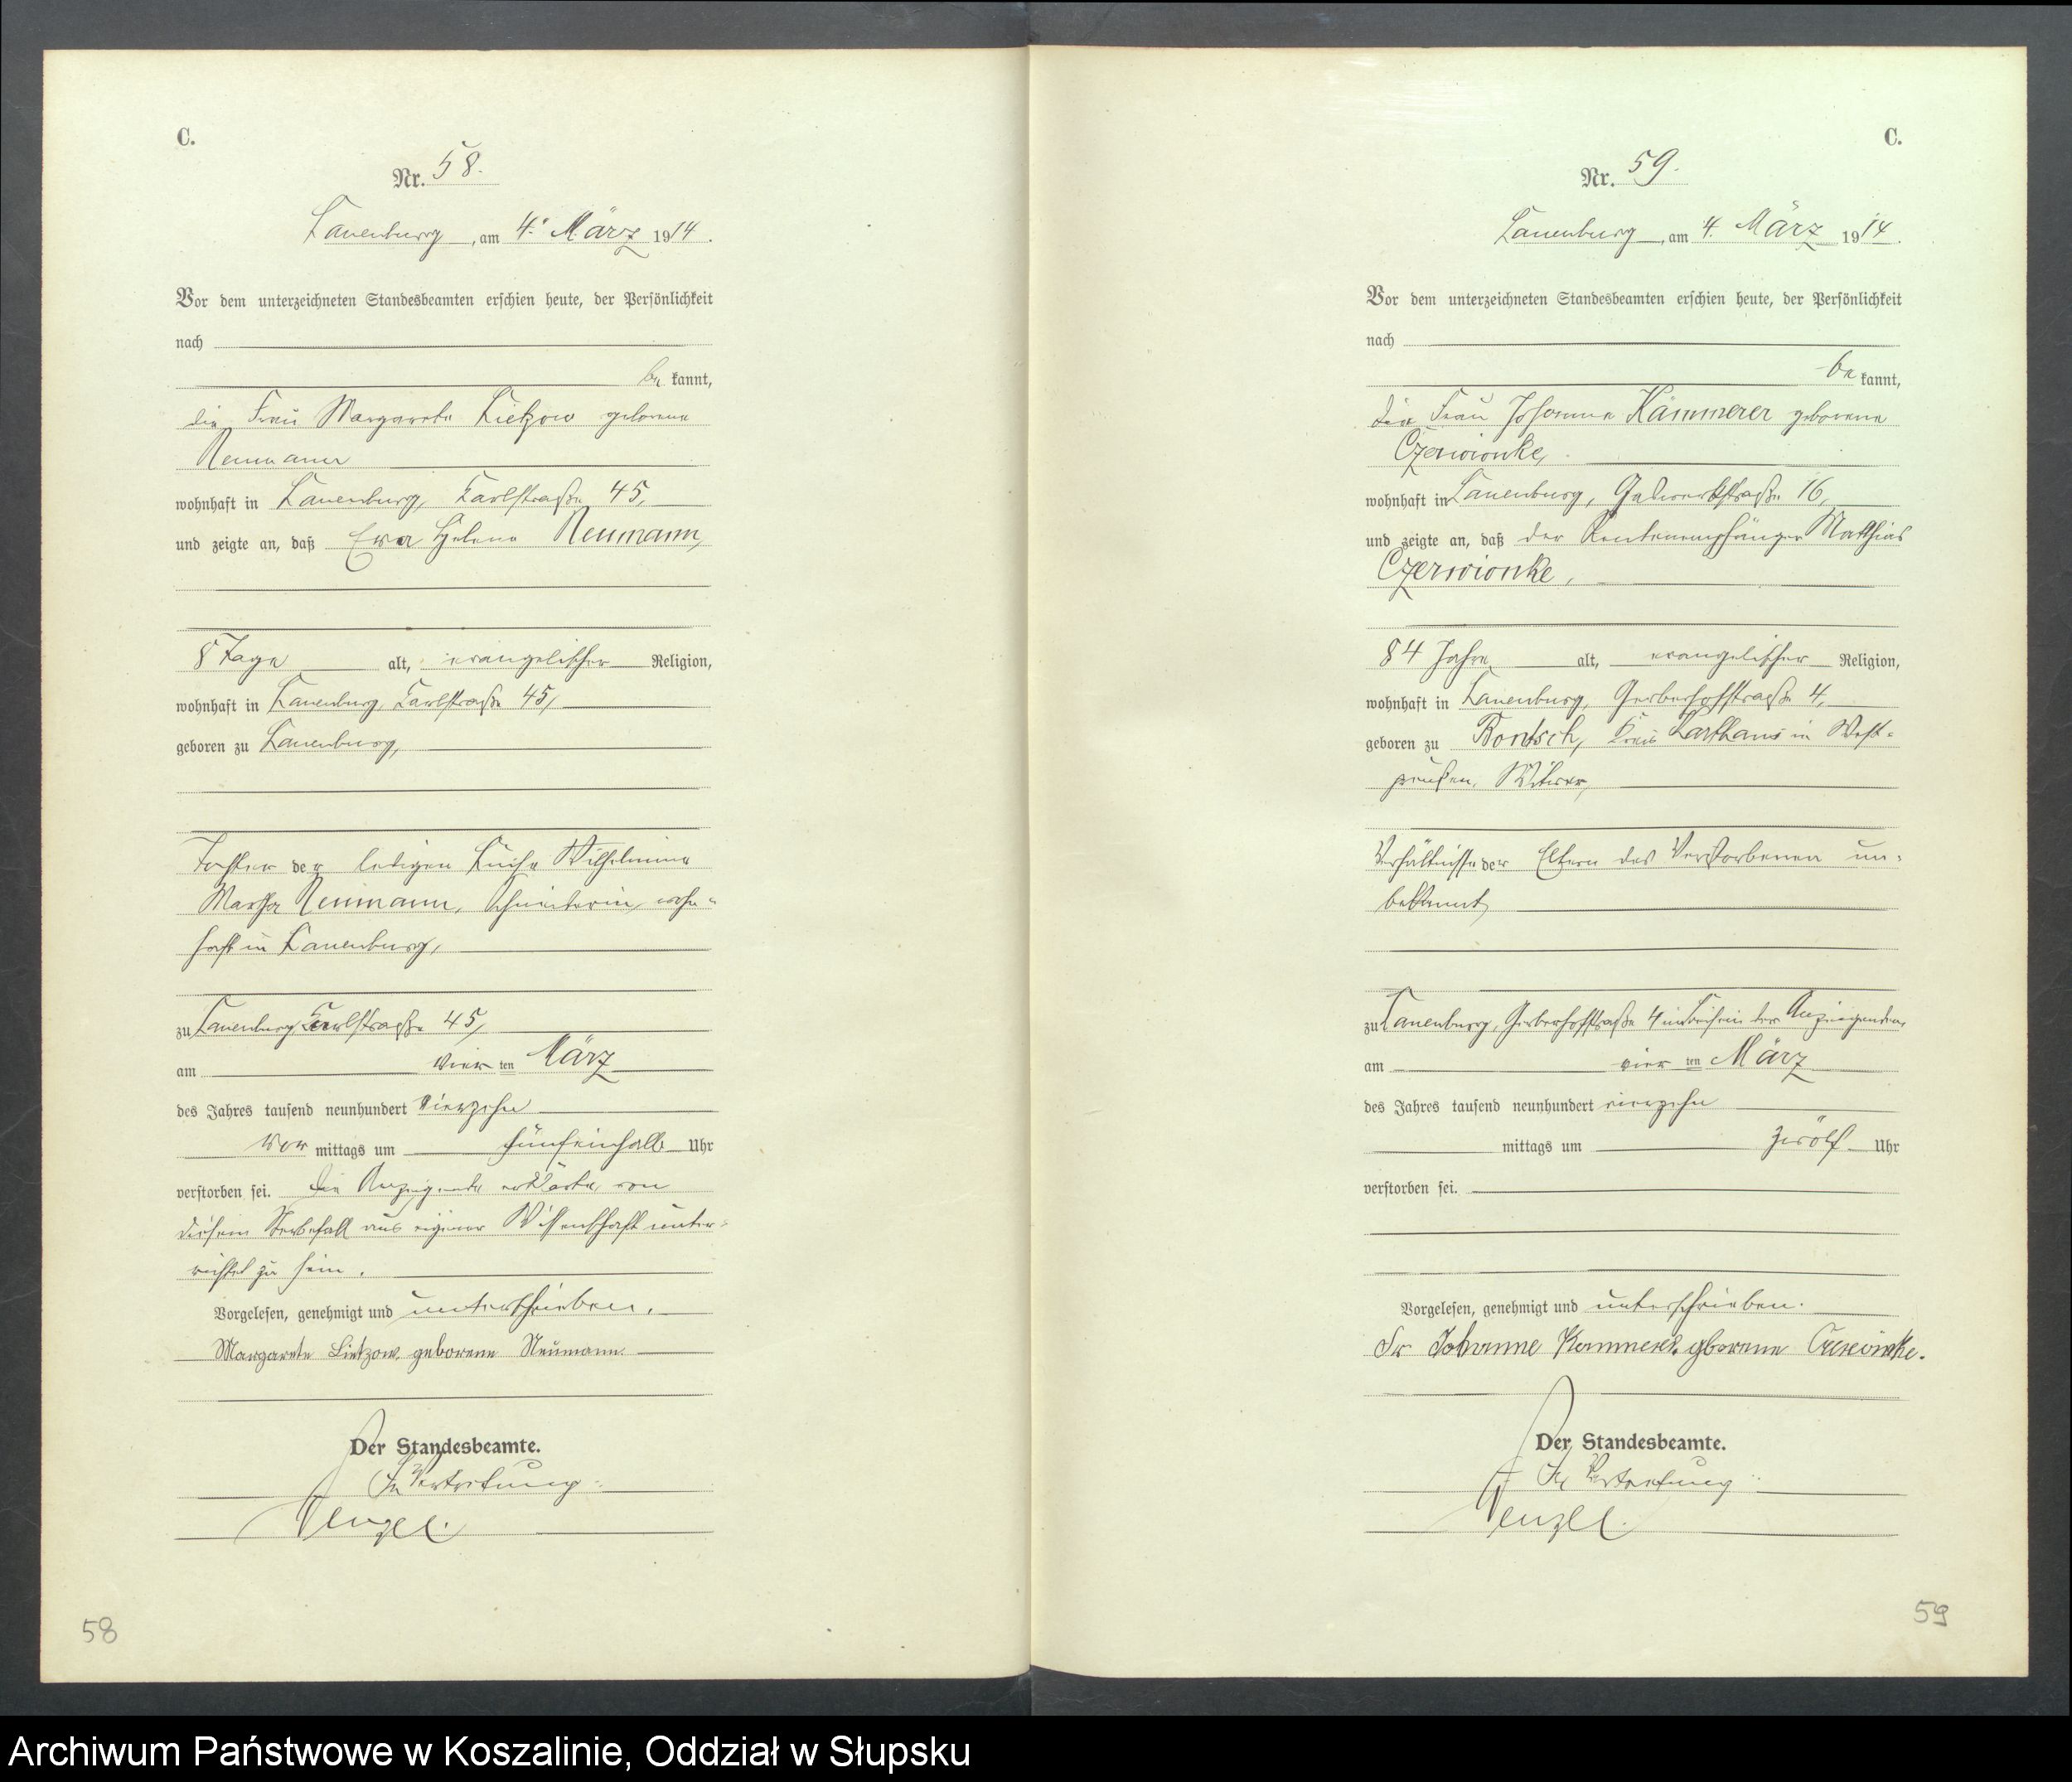 C.
Nr. 58.
Lauenburg, am 4. März 1914.
Vor dem unterzeichneten Standesbeamten erschien heute, der Persönlichkeit
nach
be kannt,
die Frau Margarete Lietzow geborene
Neumann
wohnhaft in Lauenburg, Karlstraße 45,
und zeigte an, daß Eva Helene Neumann,
8 Tage alt, evangelischer Religion,
wohnhaft in Lauenburg, Karlstraße 45,
geboren zu Lauenburg,
Tochter der ledigen Luise Wilhelmine
Martha Neumann, wohn-
haft in Lauenburg,
zu Lauenburg, Karlstraße 45,
am vier ten März
des Jahres tausend neunhundert vierzehn
vor mittags um fünfeinhalb Uhr
verstorben sei. Die Anzeigende erklärte, von
diesem Sterbefall aus eigener Wissenschaft unter-
richtet zu sein.
Vorgelesen, genehmigt und unterschrieben.
Margarete Lietzow. geborene Neumann.
Der Standesbeamte.
In Vertretung:
Wenzel.
58
C.
Nr. 59.
Lauenburg, am 4. März 1914.
Vor dem unterzeichneten Standesbeamten erschien heute, der Persönlichkeit
nach
be kannt,
die Frau Johanne Kämmerer geborene
Czerwionke,
wohnhaft in Lauenburg, 16,
und zeigte an, daß der Rentenempfänger Matthias
Czerwionke,
84 Jahre alt, evangelischer Religion,
wohnhaft in Lauenburg, Gerberhofstraße 4,
geboren zu Bontsch, Kreis Karthaus in West-
preußen, Witwer,
Verhältnisse der Eltern des Verstorbenen un-
bekannt,
zu Lauenburg, Gerberhofstraße 4 im Beisein der Anzeigenden,
am vier ten März
des Jahres tausend neunhundert vierzehn
mittags um zwölf Uhr
verstorben sei.
Vorgelesen, genehmigt und unterschrieben.
Fr Johanne Kammerer. gborene
Der Standesbeamte.
In Vertretung:
Wenzel.
59
Archiwum Państwowe w Koszalinie, Oddział w Słupsku